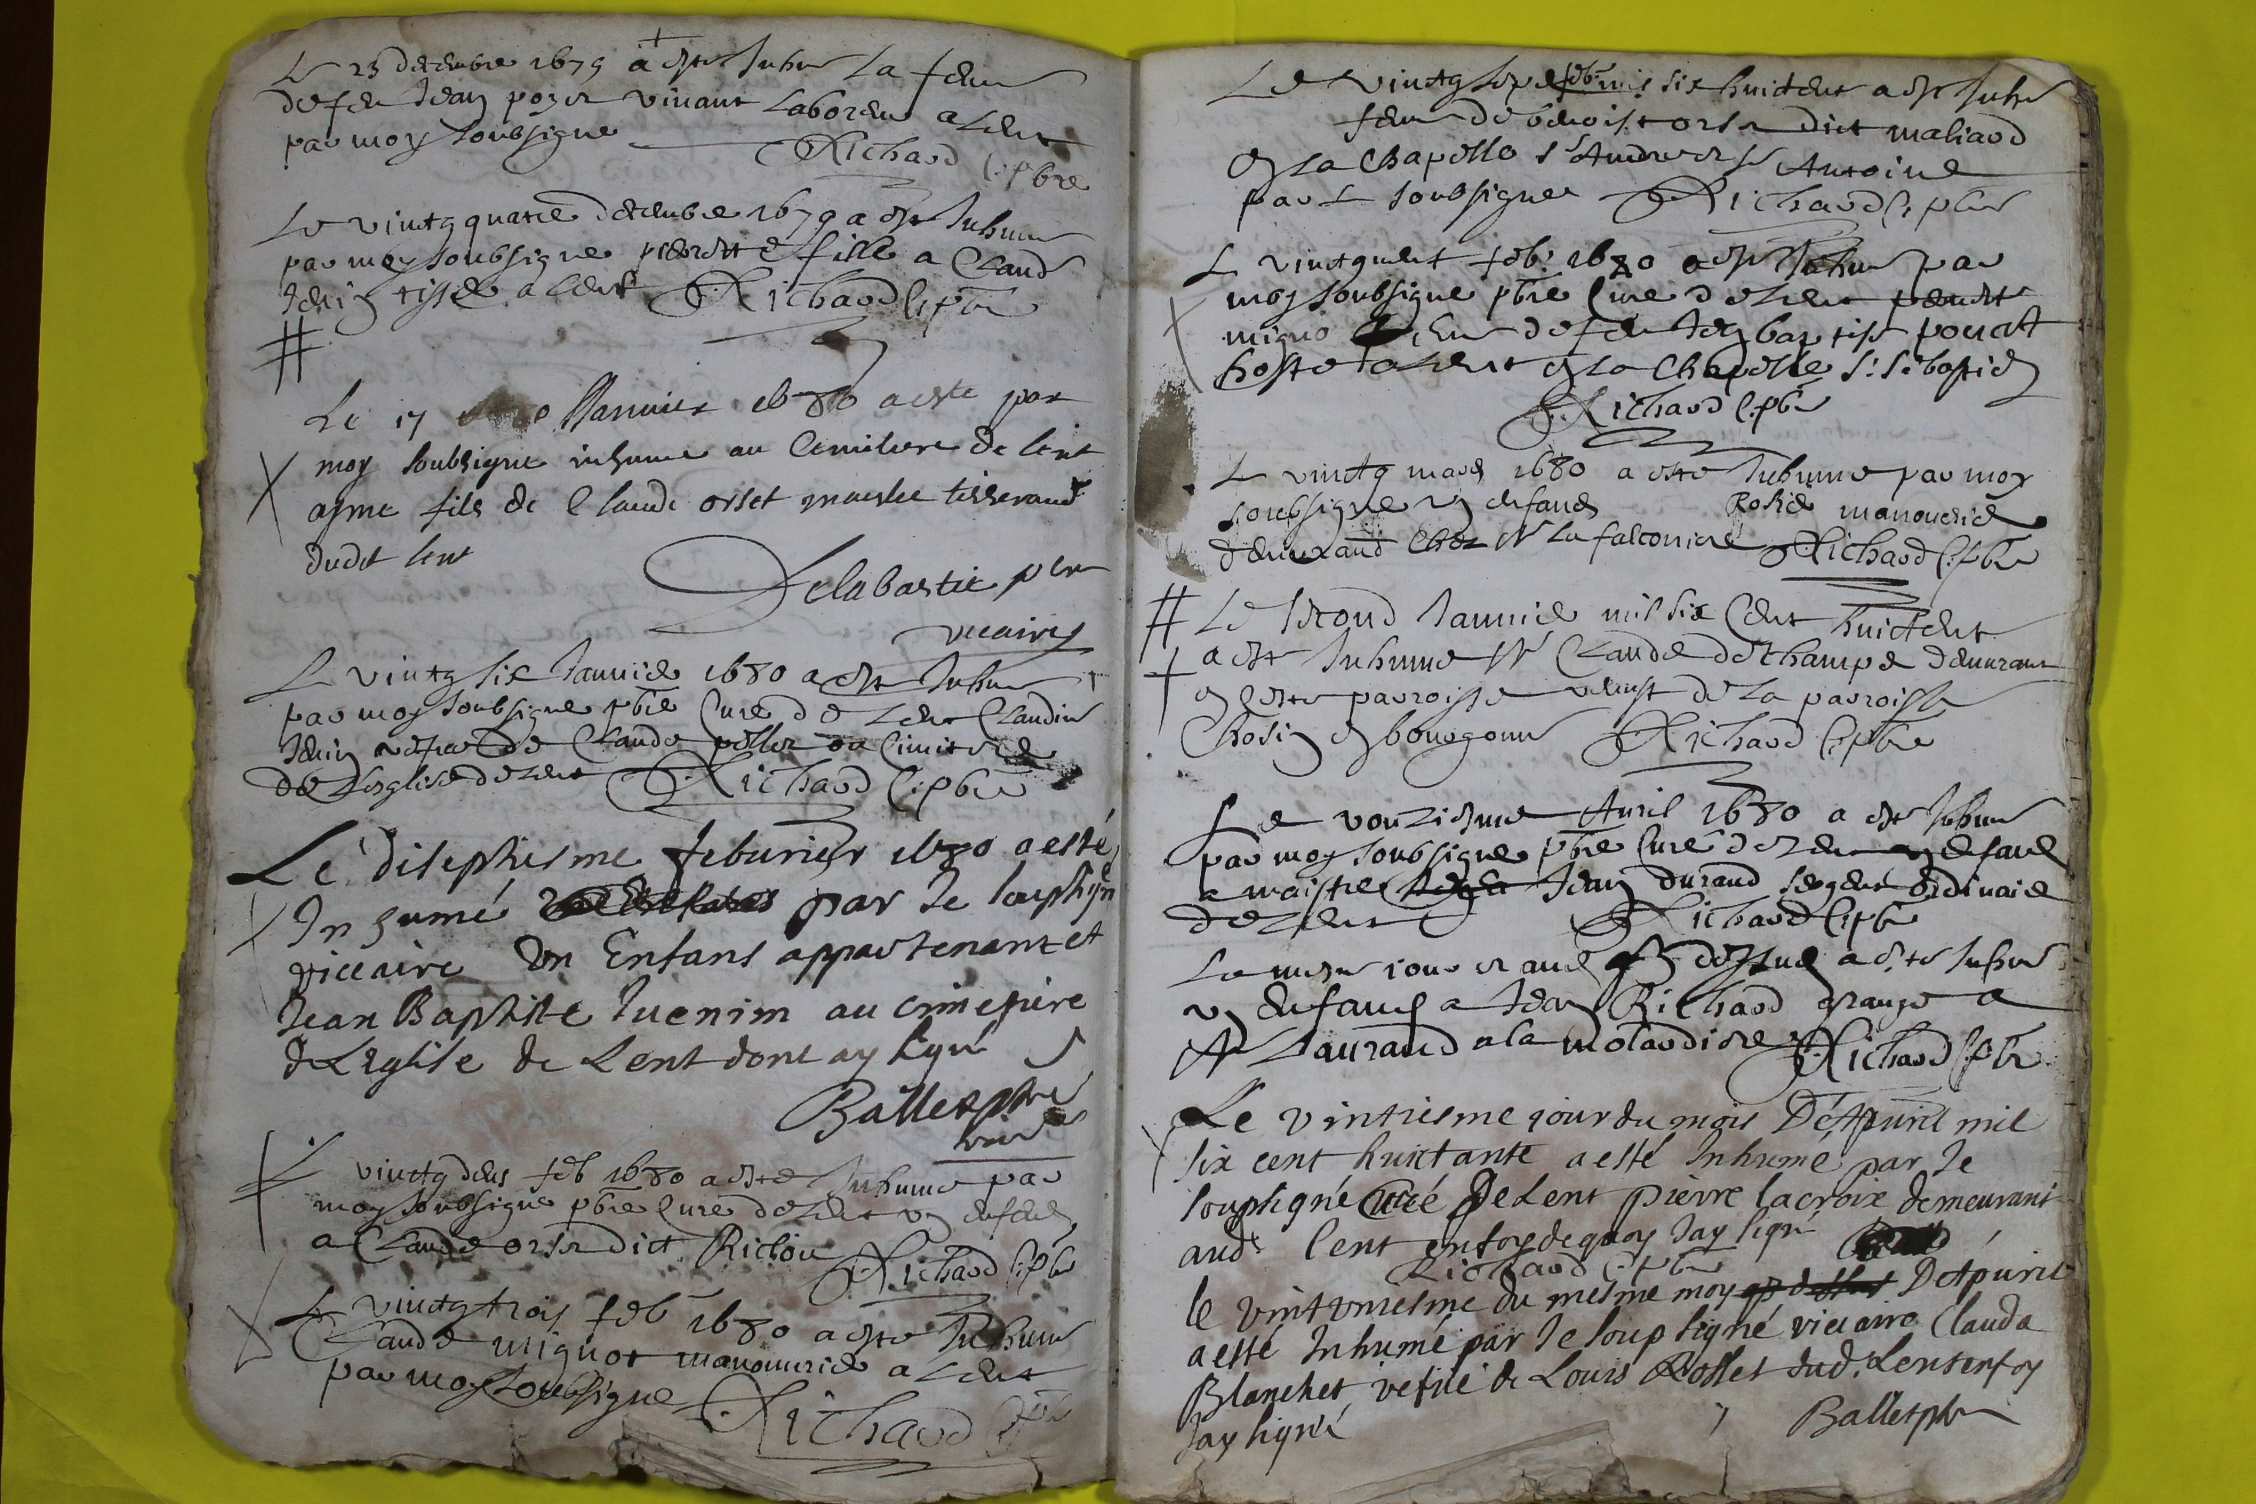 Le 23 decembre 1679 a este Inhu la feme
de feu Jean pozet vivant laboreur a Lent
par moy soubsigne Richard C. pbre
Le vingt quatre decembre 1679 a este Inhume
par moy soubsigne pierrette fille a Claude
Jenin tissie a Lent Richard C. pbre
Le 17 Januier 1680 a este par
moy soubsigne inhume au Cemitiere de lent
ayme fils de Claude orset maistre tisserand
dudt lent
Delabastie pbre
vicaire
Le vingt six Januie 1680 a este Inhu
par moy soubsigne pbre Cure de Lent Claudine
Jenin vefue de Claude pellet au Cimitiere
de L'esglise de Lent Richard C. pbre
Le disephiesme feburier 1680 a esté
Inhumé par Je souphign
viccaire Un Enfans appartenant et
Jean Baptiste Juenim au cimetiere
de L'Eglise de Lent dont ay signé
Ballet pbre
vicaire
Le vingt deus feb 1680 a este Inhume par
moy soubsigne pbre Cure de Lent un enfens
a Claude orset dict Richou Richard C. pbre
Le vingt trois feb 1680 a este Inhume
Claude mignot manouurie a Lent
par moy soubsigne Richard C. pbre
Le vingt sept feb mil six huictent a este Inhu
feme de benoist orset dict maliard
en La Chapelle st Andre et st Antoine
par Le soubsigne Richard C. pbre
Le vingtneuf feb: 1680 a este Inhu par
moy soubsigne pbre Cure de Lent pernette
migno feme de feu Jean baptiste
hoste a Lent en La Chapelle St Sebastien
Richard C. pbre
Le vingt mars 1680 a este Inhume par moy
soubsigne un enfans Rosie manouerie
demeurand Chez Mr La falconiere Richard C. pbre
Le second Januie mil six Cent huictent
a este Inhume Mr Claude dechampe demurant
en ceste parroisse de La parroisse
Chosin en bourgonne Richard C. pbre
Le vonziesme Auril 1680 a este Inhu
par moy soubsigne pbre Curé de Lent un enfans
a maistre Jean durand sergent ordinaire
de Lent Richard C. pbre
Le mesme iour et an desus a este Inhu
un enfans a Jean Richard grange a
Mr Laurand a la molardiere Richard C. pbre
Le vintiesme jour du mois D'Apuril mil
six cent huictante a esté Inhumé par Je
soupsigné Curé De Lent pierre lacroix demeurant
aud lent enfoy de quoy Jay signé
Richard C. pbre
le vintvniesme du mesme moy D'Apuril
a esté Inhumé par Je soupsigné viccaire Clauda
Blanchet vefue de Louis Rosset dud. Lent enfoy
Jay signé Ballet pbre